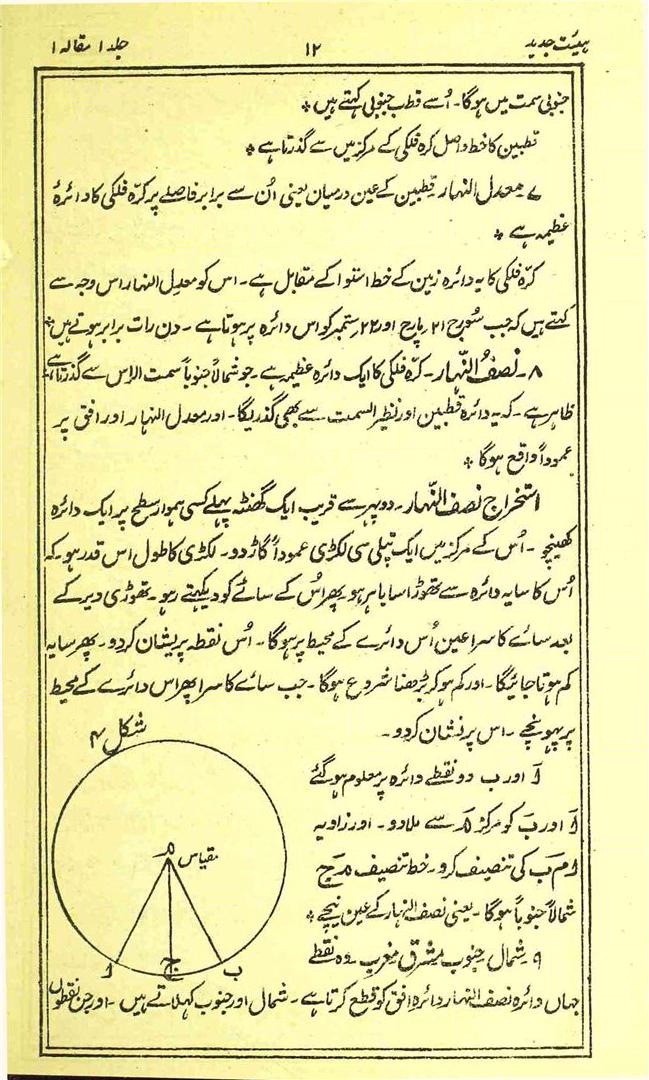 ہیئت جدید ۱۲ جلد ۱ مقالہ ۱
جنوبی سمت میں ہوگا۔ اُسے قطب جنوبی کہتے ہیں *
قطبین کا خط واصل کرہ فلکی کے مرکز میں سے گذرتا ہے *
۷۔ معدل النہار قطبین کے عین درمیان یعنی اُن سے برابر فاصلے پر کرّہ فلکی کا دائرۂ
عظیمہ ہے *
کرّہ فلکی کا یہ دائرہ زمین کے خط استوا کے متقابل ہے۔ اس کو معدل النہار اس وجہ سے
کہتے ہیں کہ جب سُورج ۲۱؍ مارچ اور ۲۲؍ ستمبر کو اس دائرہ پر ہوتا ہے۔ دن رات برابر ہوتے ہیں *
۸۔ نصفُ النّہار۔ کرّہ فلکی کا ایک دائرہ عظیمہ ہے۔ جو شمالاً جنوباً سمت الراس سے گذرتا ہے
ظاہر ہے۔ کہ یہ دائرہ قطبین اور نظیر السمت سے بھی گذریگا۔ اور معدل النہار اور افق پر
عموداً واقع ہوگا *
استخراج نصف النّہار۔ دوپہر سے قریب ایک گھنٹہ پہلے کسی ہموار سطح پر ایک دائرہ
کھینچو۔ اُس کے مرکز میں ایک پتلی سی لکڑی عموداً گاڑ دو۔ لکڑی کا طول اس قدر ہو۔ کہ
اُس کا سایہ دائرہ سے تھوڑا سا باہر ہو۔ پھر اُس کے سائے کو دیکھتے رہو۔ تھوڑی دیر کے
بعد سائے کا سرا عین اُس دائرے کے محیط پر ہوگا۔ اُس نقطہ پر نشان کردو۔ پھر سایہ
کم ہوتا جائیگا۔ اور کم ہو کر بڑھنا شروع ہوگا۔ جب سائے کا سرا پھر اس دائرے کے محیط
پر پہونچے۔ اس پر نشان کردو۔
شکل ۴
اَ اور ب دو نقطے دائرہ پر معلوم ہو گئے
اَ اور بَ کو مرکز مَ سے ملا دو۔ اور زاویہ
اَ مَ بَ کی تنصیف کرو۔ خط تنصیف مَ جَ
شمالاً جنوباً ہوگا۔ یعنی نصف النہار کے عین نیچے *
۹۔ شمال۔ جنوب مشرق مغرب۔ وہ نقطے
جہاں دائرہ نصف النہار دائرہ افق کو قطع کرتا ہے۔ شمال اور جنوب کہلاتے ہیں۔ اور جن نقطوں
م مقیاس
ا ج ب